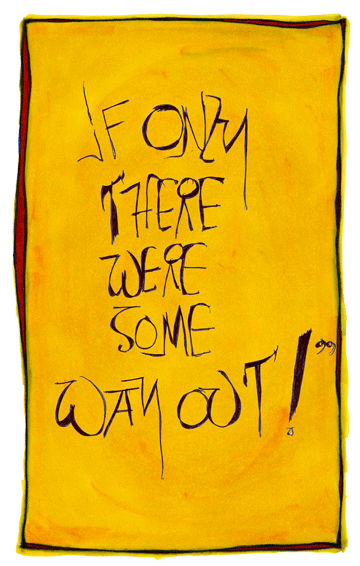 IF ONLY
THERE
WERE
SOME
WAY OUT!”